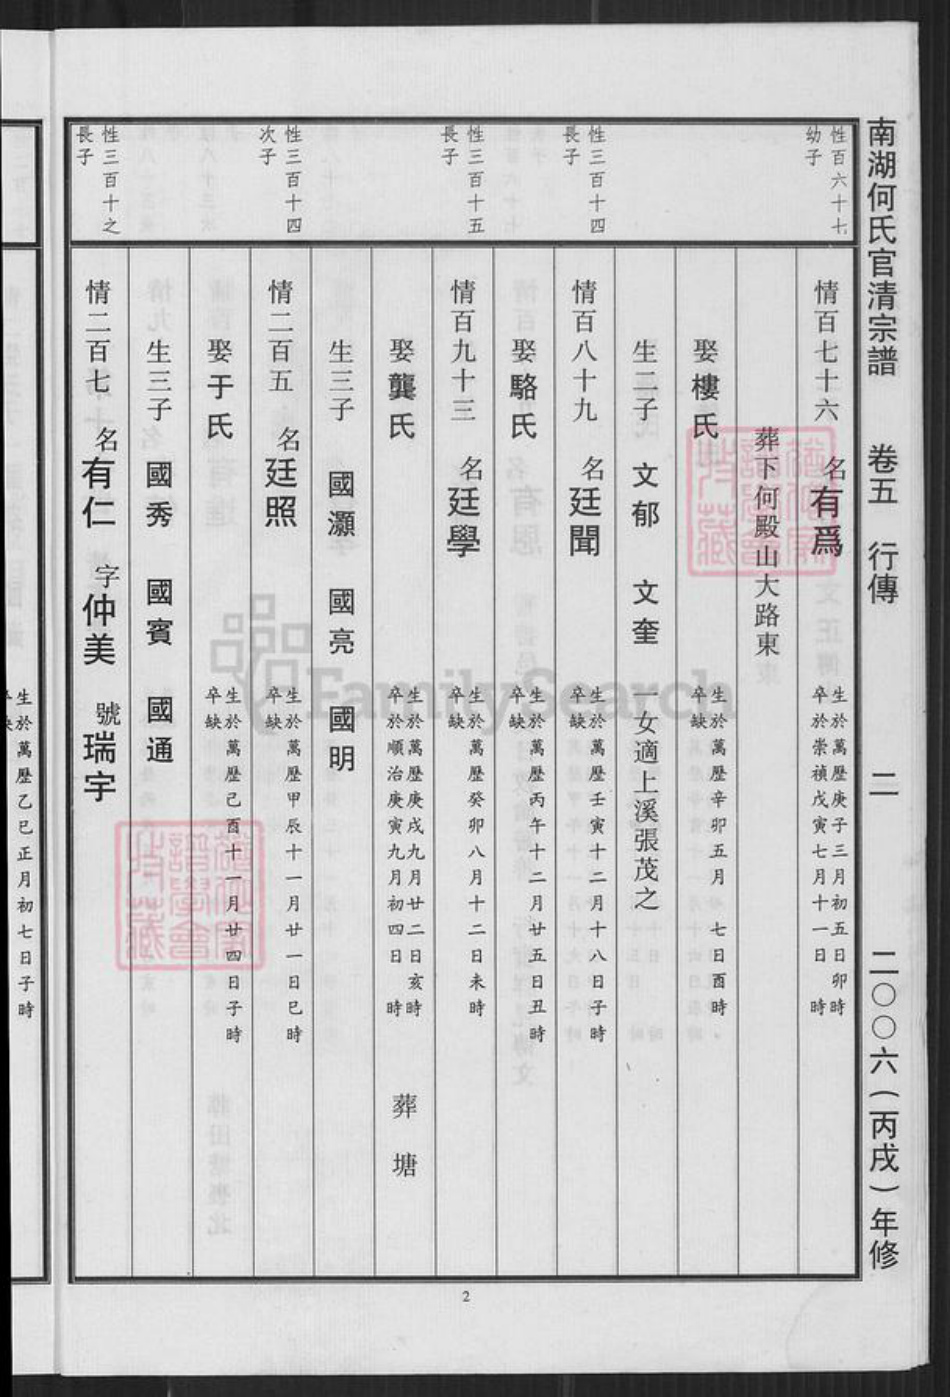 南湖何氏官清宗譜 卷五 行傳 二 二〇〇六(丙戌)年修
性百六十七
幼子
情百七十六 名有爲 生於萬歷庚子三月初五日卯時
卒於崇禎戊寅七月十一日 時
葬下何殿山大路東
娶樓氏 生於萬歷辛卯五月 七日酉時
卒缺
生二子 文郁 文奎 一女適上溪張茂之
性三百十四
長子
情百八十九 名廷聞 生於萬歷壬寅十二月十八日子時
卒缺
娶駱氏 生於萬歷丙午十二月廿五日丑時
卒缺
性三百十五
長子
情百九十三 名廷學 生於萬歷癸卯八月十二日未時
卒缺
娶龔氏 生於萬歷庚戌九月廿二日亥時
卒於順治庚寅九月初四日 時 葬 塘
生三子 國灝 國亮 國明
性三百十四
次子
情二百五 名廷照 生於萬歷甲辰十一月廿一日巳時
卒缺
娶于氏 生於萬歷己酉十一月廿四日子時
卒缺
生三子 國秀 國賓 國通
性三百十之
長子
情二百七 名有仁 字仲美 號瑞宇
生於萬歷乙巳正月初七日子時
卒缺
2
FamilySearch